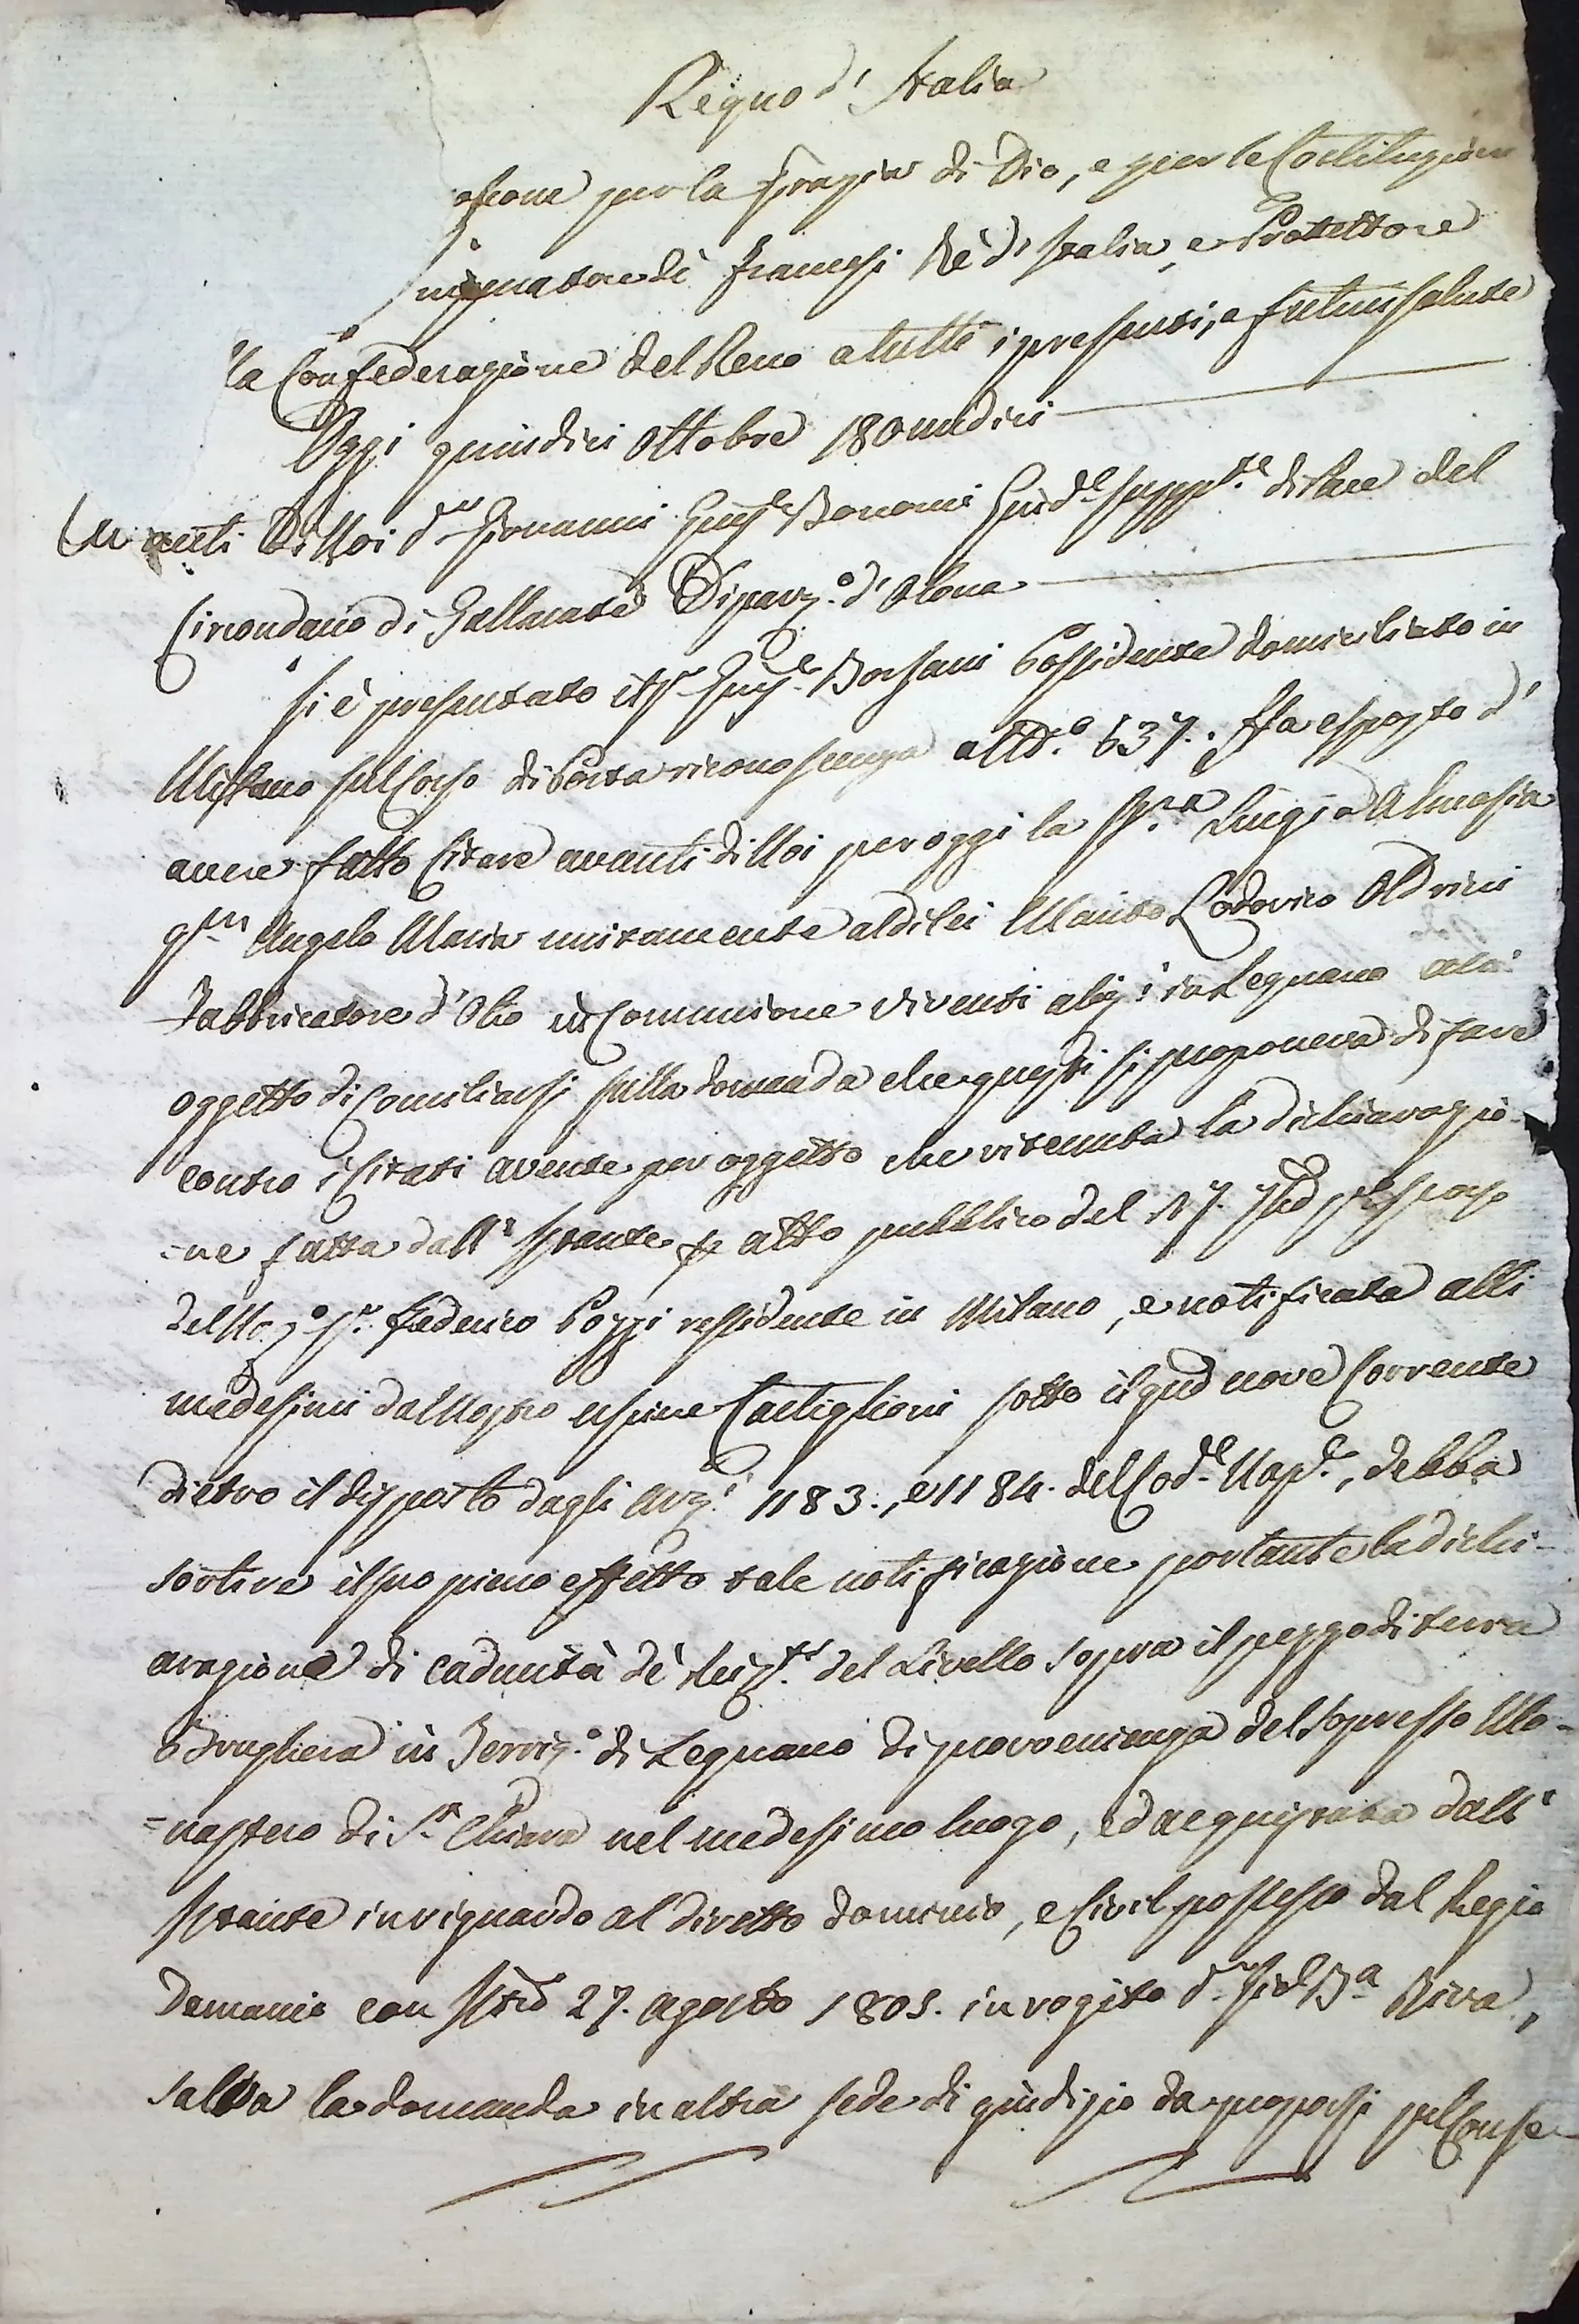 Regno d'Italia
per la Grazia di Dio, e per le Costituzioni
de' Francesi Rè d'Italia, e Protettore
la Confederazione del Reno a tutti i presenti, e futuri salute
Oggi quindici Ottobre 180undici
avanti Di Noi d.n Giovanni Gius.e Bonomi Giud.e supp.te di Pace del
Circondario di Gallarate Dipar.o d'Olona
Si è presentato il S.r Gius.e Borsani Possidente domiciliato in
Milano sul Corso di Porta riconoscenza al N.o 637. Ha esposto d'
avere fatto Citare avanti di Noi per oggi la Sig.ra Luigia Almasia
q.m Angelo Maria unitamente al di lei Marito Lodovico Aldrini
Fabbricatore d'Olio in Comunione viventi abi in Legnano
oggetto di Conciliarsi sulla domanda che questi si proponeva di fare
contro i Citati avente per oggetto che ritenuta la dichiarazio-
-ne fatta dall'Istante p atto pubblico del 17.
del No.o S.r Federico Pozzi residente in Milano, e notificata alli
medesimi dal Nostro usciere Castiglioni sotto il giud nove Corrente
dietro il disposto dagli Art.i 1183., e 1184. del Cod.e Nap.e, debba
sortire il suo pieno effetto tale notificazione portante la dichi-
arazione di caducità de' del Livello sopra il pezzo di terra
Brughiera in Territ.o di Legnano di provenienza del sopresso Mo-
=nastero di S.a Chiara nel medesimo luogo, ed acquistata dall'
Istante in riguardo al diretto dominio, e Civil possesso dal Regio
Demanio con Istrō 27. agosto 1805. in rogito d.r Gio Ba Riva,
salva la domanda in altra sede di giudizio da proporsi pel Conse-